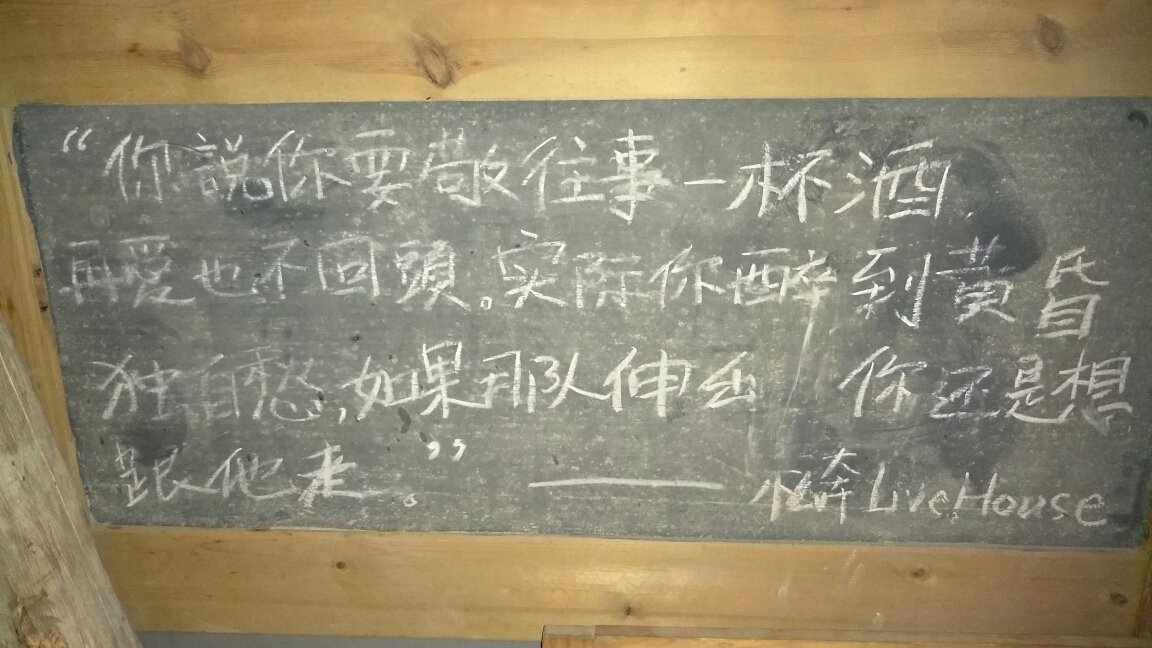 “你説你要敬往事一杯酒,
再愛也不回頭。实际你醉到黄昏
独自愁,如果那队伸出 你还是想
跟他走。”
—— 私奔 LiveHouse